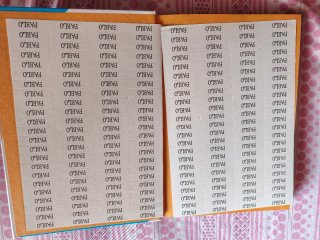 PABLO PABLO PABLO PABLO
PABLO PABLO PABLO PABLO
PABLO PABLO PABLO PABLO
PABLO PABLO PABLO PABLO
PABLO PABLO PABLO PABLO
PABLO PABLO PABLO PABLO
PABLO PABLO PABLO PABLO
PABLO PABLO PABLO PABLO
PABLO PABLO PABLO PABLO
PABLO PABLO PABLO PABLO
PABLO PABLO PABLO PABLO
PABLO PABLO PABLO PABLO
PABLO PABLO PABLO PABLO
PABLO PABLO PABLO PABLO
PABLO PABLO PABLO PABLO
PABLO PABLO PABLO PABLO
PABLO PABLO PABLO PABLO
PABLO PABLO PABLO PABLO
PABLO PABLO PABLO PABLO
PABLO PABLO PABLO PABLO
PABLO PABLO PABLO PABLO
PABLO PABLO PABLO PABLO
PABLO PABLO PABLO PABLO
PABLO PABLO PABLO PABLO
PABLO PABLO PABLO PABLO
PABLO PABLO PABLO PABLO
PABLO PABLO PABLO PABLO
PABLO PABLO PABLO PABLO
PABLO PABLO PABLO PABLO
PABLO PABLO PABLO PABLO
PABLO PABLO PABLO PABLO
PABLO PABLO PABLO PABLO
PABLO PABLO PABLO PABLO
PABLO PABLO PABLO PABLO
PABLO PABLO PABLO PABLO
PABLO PABLO PABLO PABLO
PABLO PABLO PABLO PABLO
PABLO PABLO PABLO PABLO
PABLO PABLO PABLO PABLO
PABLO PABLO PABLO PABLO
PABLO PABLO PABLO PABLO
PABLO PABLO PABLO PABLO